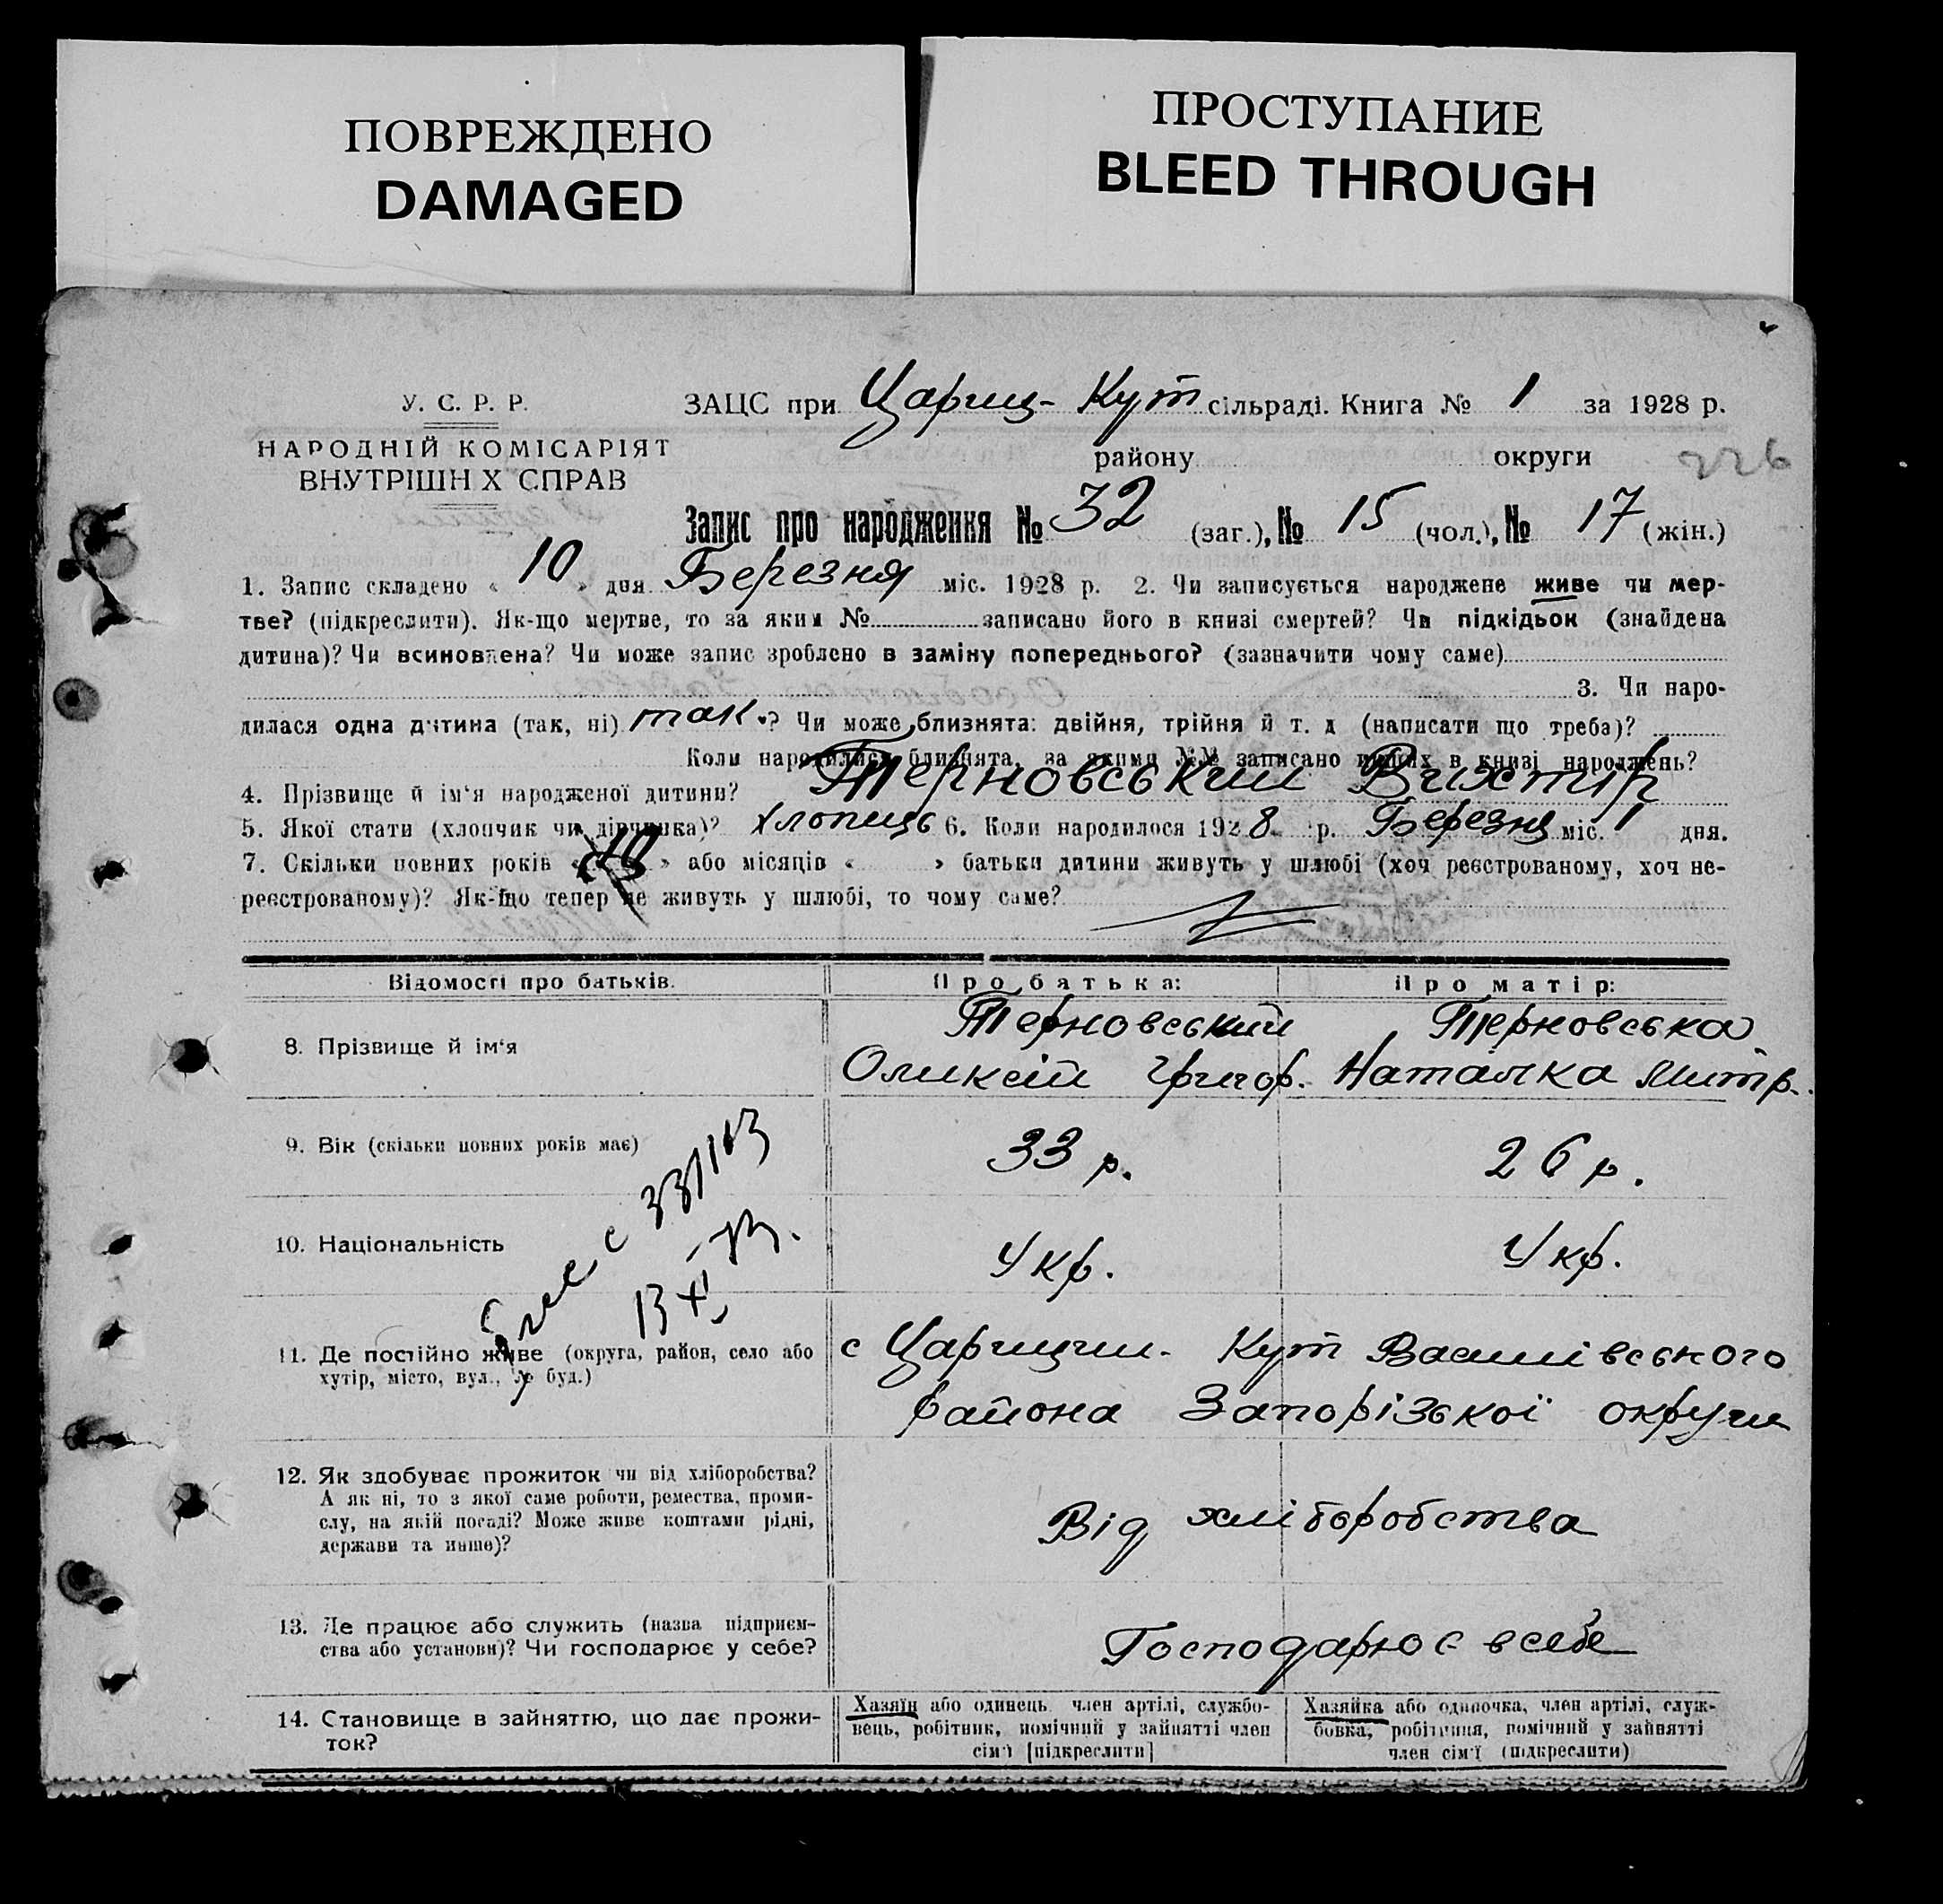 ПОВРЕЖДЕНО
DAMAGED
ПРОСТУПАНИЕ
BLEED THROUGH
У. С. Р. Р.
НАРОДНІЙ КОМІСАРІЯТ
ВНУТРІШН Х СПРАВ
ЗАЦС при Цариц- Кут сільраді. Книга № 1 за 1928 р.
району округи 226
Запис про народження № 32 (заг.), № 15 (чол.), № 17 (жін.)
1. Запис складено « 10 » дня Березня міс. 1928 р. 2. Чи записується народжене живе чи мер-
тве? (підкреслити). Як-що мертве, то за яким № записано його в книзі смертей? Чи підкідьок (знайдена
дитина)? Чи всиновлена? Чи може запис зроблено в заміну попереднього? (зазначити чому саме)
3. Чи наро-
дилася одна дитина (так, ні) так? Чи може близнята: двійня, трійня й т. д (написати що треба)?
Коли народилися близнята, за якими №№ записано инших в книзі народжень?
4. Прізвище й ім'я народженої дитини? Терновський Вихтір
5. Якої стати (хлопчик чи дівчинка)? хлопиць 6. Коли народилося 1928 р. Березня міс. 1 дня.
7. Скільки повних років « » або місяців « » батьки дитини живуть у шлюбі (хоч реєстрованому, хоч не-
реєстрованому)? Як-що тепер не живуть у шлюбі, то чому саме?
Відомості про батьків. Про батька: Про матір:
8. Прізвище й ім'я
Терновський Терновська
Оликсій Григор. Наталка Митр.
9. Вік (скільки повних років має) 33 р. 26 р.
10. Національність Укр. Укр.
11. Де постійно живе (округа, район, село або
хутір, місто, вул., № буд.)
с Царицин- Кут Василівського
района Запорізької округи
12. Як здобуває прожиток чи від хліборобства?
А як ні, то з якої саме роботи, ремества, проми-
слу, на якій посаді? Може живе коштами рідні,
держави та инше)?
Від хліборобства
13. Де працює або служить (назва підприєм-
ства або установи)? Чи господарює у себе?
Господарює в себе
14. Становище в зайняттю, що дає прожи-
ток?
Хазяїн або одинець член артілі, службо-
вець, робітник, помічний у зайнятті член
сім'ї [підкреслити]
Хазяйка або одиночка, член артілі, служ-
бовка, робітниця, помічний у зайнятті
член сім'ї (підкреслити)